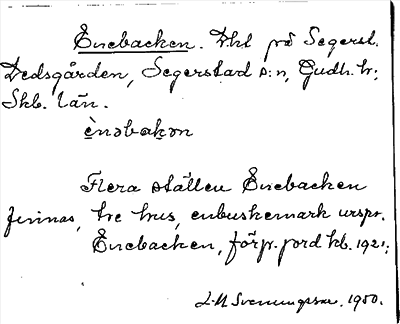 Enebacken. Dht på Segerst.
Dedsgården, Segerstad s:n, Gudh. hr;
Skb. län.
è̱nəbakən
Flera ställen Enebacken
finnas, tre hus, enbuskemark urspr.
Enebacken, förp. jord kb. 1921;
1950.